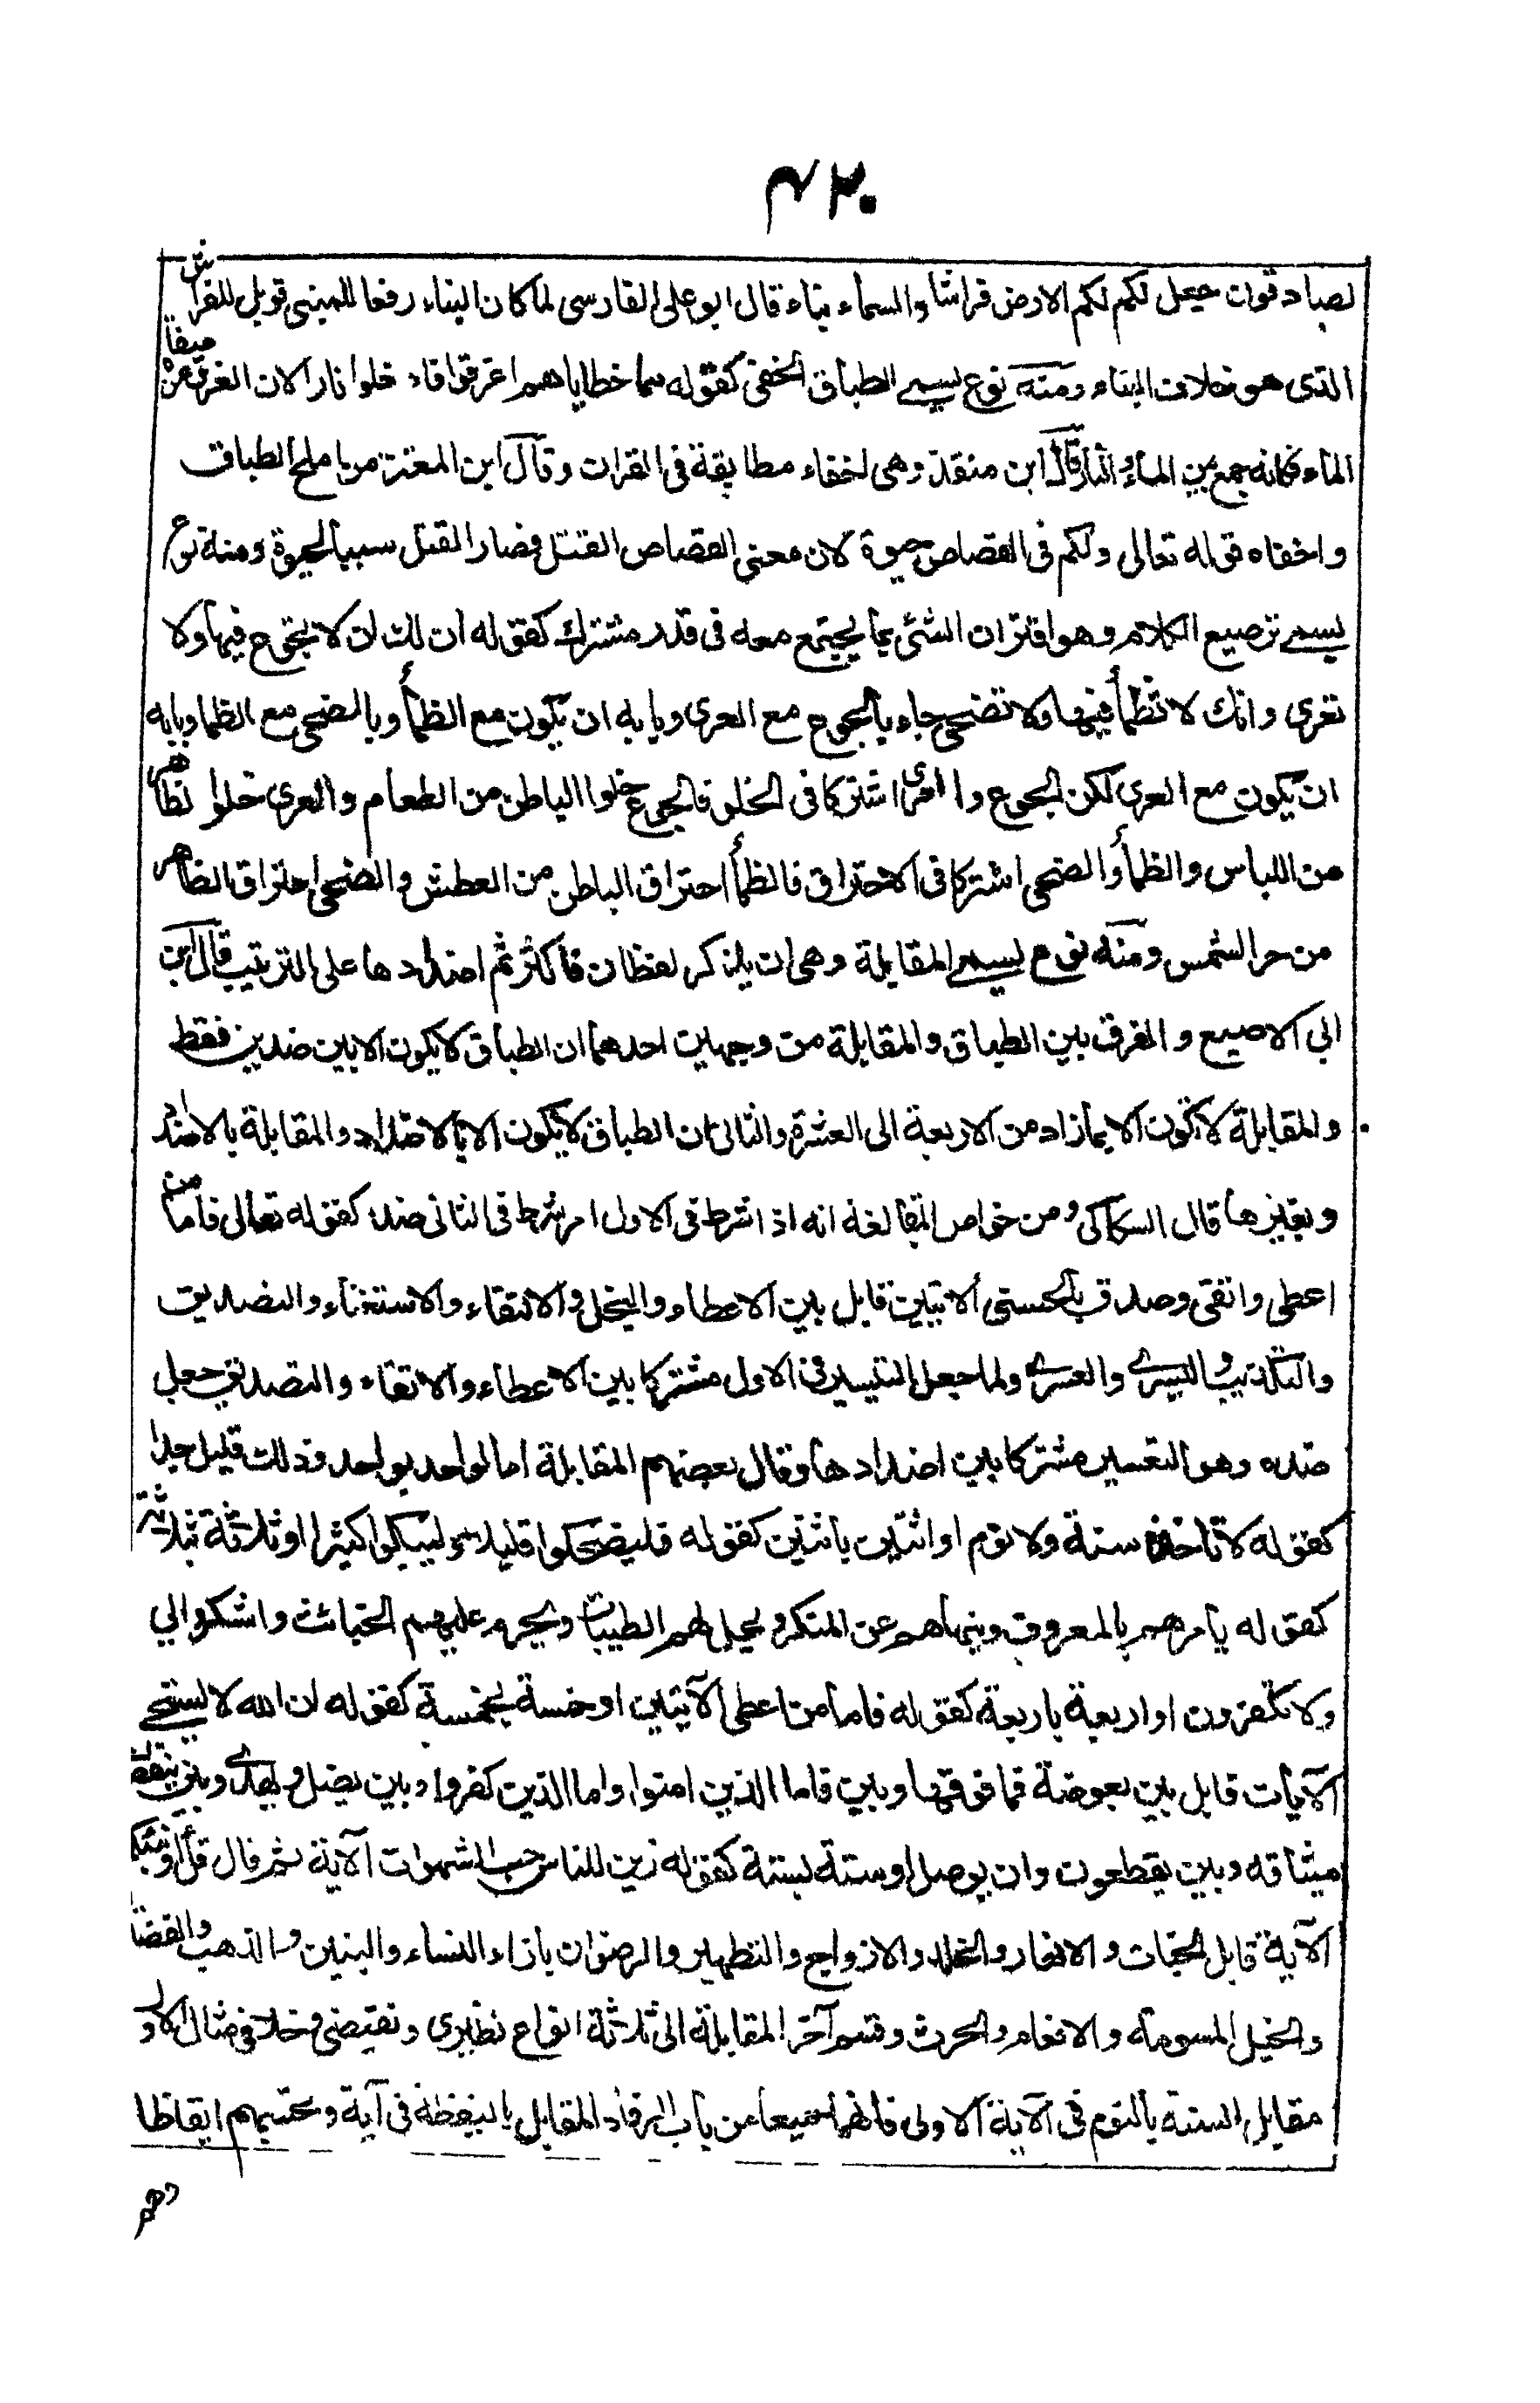 ٤٢٠
لصادقون جعل لكم لكم الارض فراشا والسماء بناء قال ابو على الفارسى لما كان البناء رفعا للمبنى قوبل للفراش
الذى هو خلاف البناء ومنه نوع يسمى الطباق الخفى كقوله مما خطاياهم اغرقوا فادخلوا نارا لان الغرق من صفة
الماء فكانه جمع بين الماء والنار قال ابن منقذ وهى اخفاء مطابقة فى القران وقال ابن المعتز من املح الطباق
واخفاه قوله تعالى ولكم فى القصاص حيوة لان معنى القصاص القتل فصار القتل سببا لحيوة ومنه نوع
يسمى ترصيع الكلام وهو اقتران الشئ بما يجتمع معه فى قدر مشترك كقوله ان لك ان لا تجوع فيها ولا
تعرى وانك لا تظمأ فيها ولا تضحى جاء بالجوع مع العرى وبابه ان يكون مع الظمأ وبالضحى مع الظما وبابه
ان يكون مع العرى لكن الجوع والعرى اشتركا فى الخلو فالجوع خلوا الباطن من الطعام والعرى خلوا لظاهر
من اللباس والظمأ والضحى اشتركا فى الاحتراق فالظمأ احتراق الباطن من العطش والضحى احتراق الظاهر
من حر الشمس ومنه نوع يسمى المقابلة وهى ان يذكر لفظان فاكثر ثم اضدادها على الترتيب قال ابن
ابى الاصبع والفرق بين الطباق والمقابلة من وجهين احدهما ان الطباق لا يكون الا بين ضدين فقط
والمقابلة لا تكون الا بما زاد من الاربعة الى العشرة والثانى ان الطباق لا يكون الا بالاضداد والمقابلة بالاضداد
وبغيرها قال السكاكى ومن خواص المقالغة انه اذا شرط فى الاول امر شرط فى الثانى ضده كقوله تعالى فاما من
اعطى واتقى وصدق بالحسنى الآيتين قابل بين الاعطاء والبخل والاتقاء والاستغناء والتصديق
والتكذيب واليسرى والعسرى ولما جعل التيسير فى الاول مشتركا بين الاعطاء والاتقاء والتصديق جعل
ضده وهو التعسير مشتركا بين اضدادها وقال بعضهم المقابلة اما لواحد بواحد وذلك قليل جدا
كقوله لا تاخذه سنة ولا نوم او اثنين باثنين كقوله فليضحكوا قليلا وليبكوا كثيرا او ثلاثة بثلاثة
كقوله يأمرهم بالمعروف وينهاهم عن المنكر ويحل لهم الطيبات ويحرم عليهم الخبائث واشكروا لي
ولا تكفرون او اربعة باربعة كقوله فاما من اعطى الآيتين او خمسة بخمسة كقوله ان الله لا يستحى
الآيات قابل بين بعوضة فما فوقها وبين فاما الذين امنوا واما الذين كفروا وبين يضل ويهدى وبين ينقضون
ميثاقه وبين يقطعون وان يوصل او ستة بستة كقوله زين للناس حب الشهوات الآية ثم قال قل أؤنبئكم
الآية قابل الجنات والانهار والخلد والازواج والتطهير والرضوان بازاء النساء والبنين والذهب والفضة
والخيل المسومة والانعام والحرث وقسم آخر المقابلة الى ثلاثة انواع نظيرى ونقيضى وخلافى مثال الاول
مقابل السنة بالنوم فى الآية الاولى فانهما جميعا من باب الرقاد المقابل باليقظة فى آية وتحسبهم ايقاظا
وهم